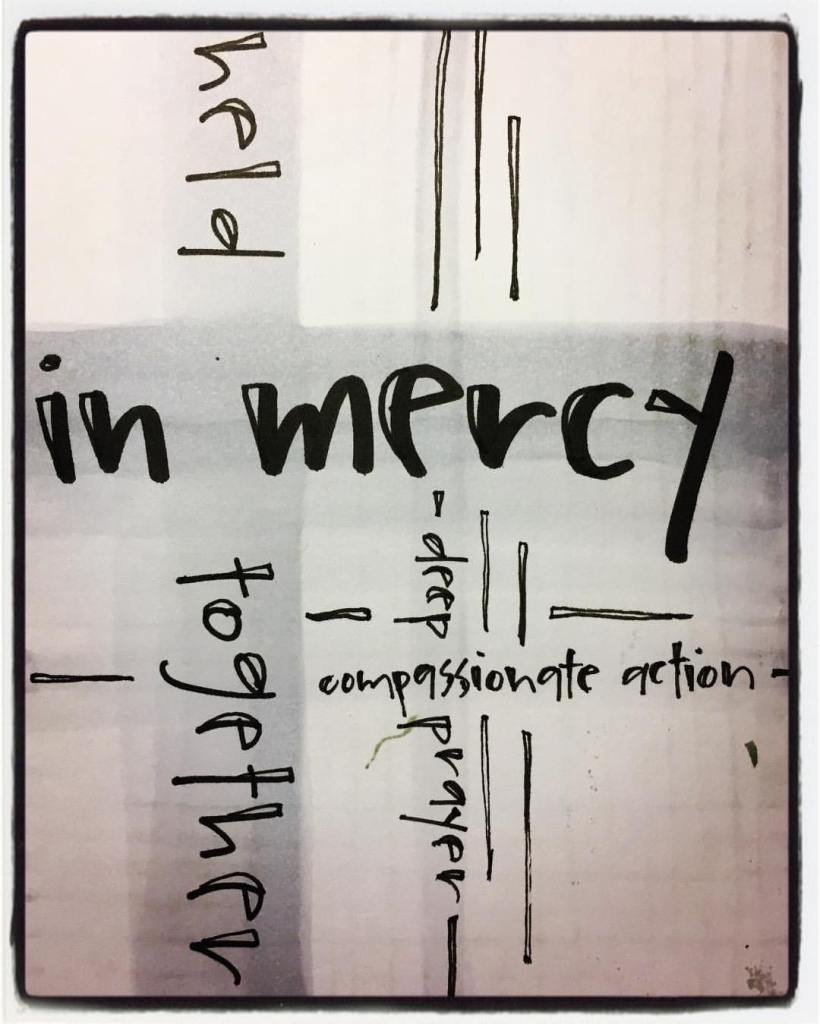 held
in mercy
together
deep
compassionate action
prayer